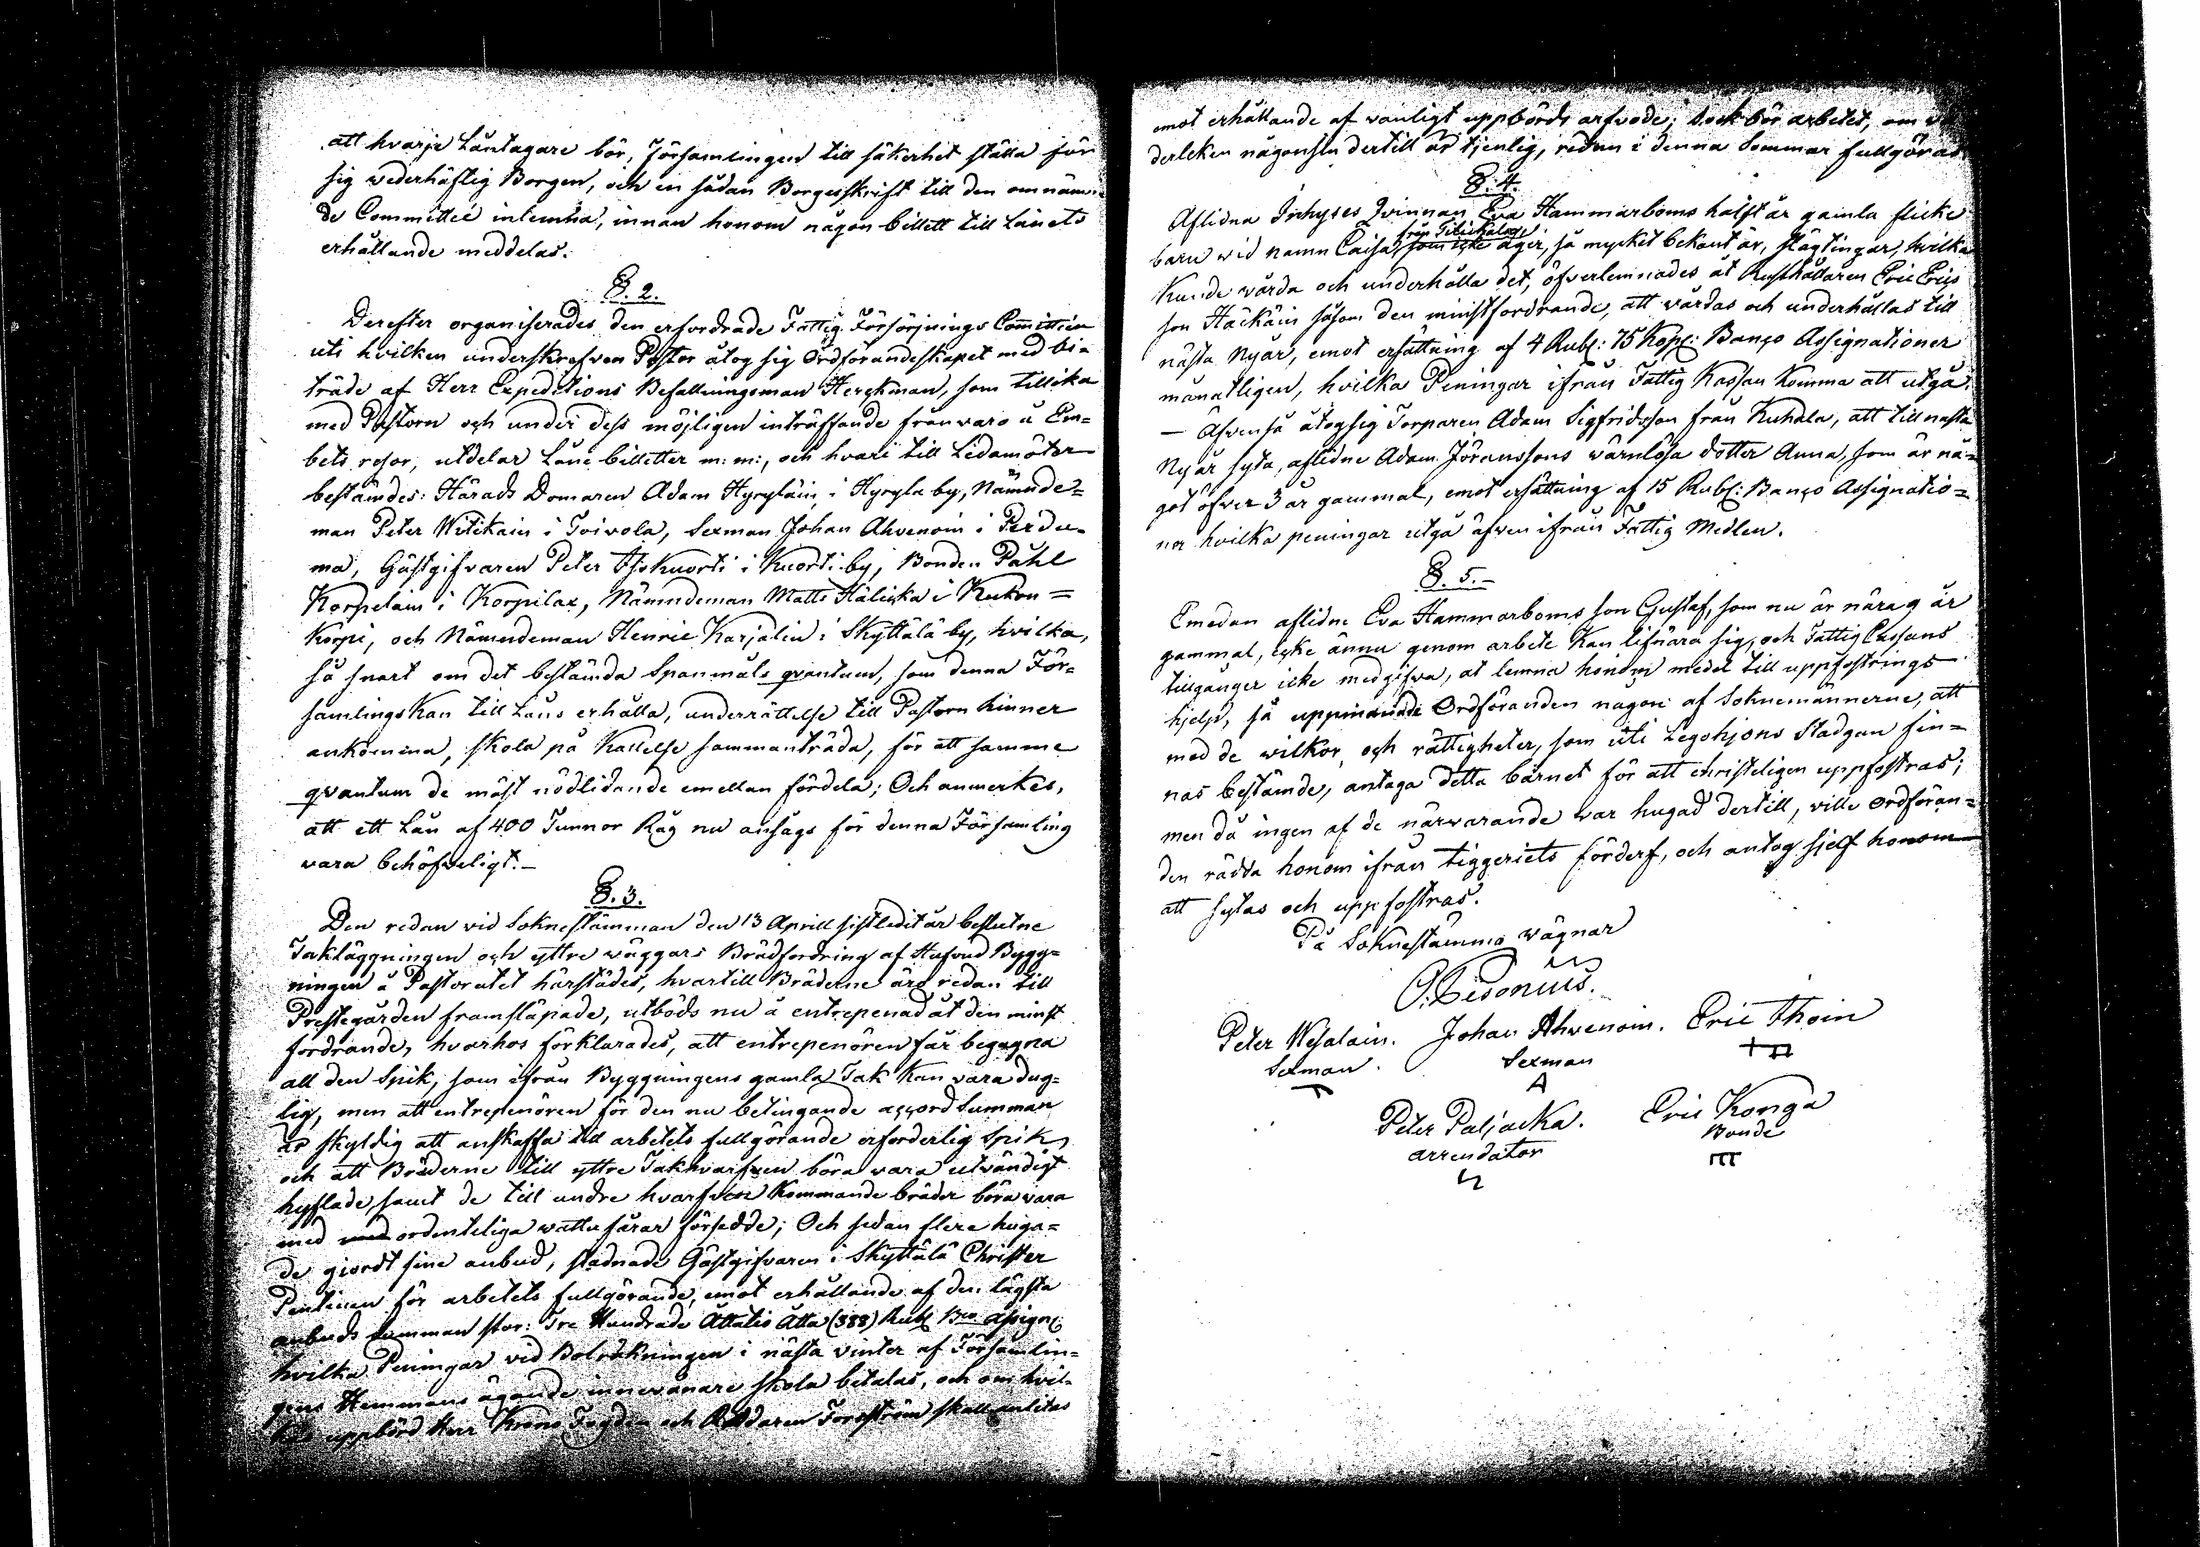 att hvarje Låntagare bör, Församlingen till säkerhet ställa för
sig wederhäftig Borgen, och en sådan Borgesskrift till den omnämn-
de Committéé inlemna, innan honom någon billett till Lånets
erhållande meddelas.
§. 2.
Derefter organiserades den erfordrade Fattig Försörjnings Committéen
uti hvilken underskrefven Pastor åtog sig Ordförandeskapet med bi-
träde af Herr Expeditions Befallningsman Herckman, som tillika
med Pastorn och under dess möjligen inträffande frånvaro å Em=
bets resor, utdelar Låne billetter m: m:, och hvari till Ledamöter
bestämdes: Härads Domaren Adam Hyryläin i Hyryla by, Nämnde=
man Peter Witikain i Toivola, Sexman Johan Ahvenoin i Perdu-
ma, Gästgifvaren Peter Iso Kuorti i Kuorti by, Bonden Påhl
Korpelain i Korpilax, Nämndeman Matts Häliskä i Kukon=
korpi, och Nämndeman Henric Karjalin i Skyttälä by, hvilka,
så snart om det bestämda Spanmåls qvantum, som denna För-
samlings kan till Låns erhålla, underrättelse till Pastorn hinner
ankomma, skola på Kallelse sammanträda, för att samme
qvantum de mäst nödlidande emellan fördela; Och anmerkes,
att ett Lån af 400 Tunnor Råg nu ansågs för denna Församling
vara behöfveligt.-
§. 3.
Den redan vid Soknestämman den 13 Aprill sistledit år beslutne
Takläggningen och yttre wäggars Brädfordring af Hufvud Bygg=
ningen å Pastoratet härstädes, hvartill Bräderne äro redan till
Prestegården framsläpade, utböds nu å entrepenad åt den minst
fordrande, hvarhos förklarades, att entrepenören får begagna
all den Spik, som ifrån Byggningens gamla Tak kan vara dug=
lig, men att entrepenören för den nu betingande accord Summan
är skyldig att anskaffa till arbetets fullgörande erforderlig Spik,
och att Bräderne till yttre Takhvarfven böra vara utvändigt
hyflade, samt de till undre hvarfven kommande bräder böra vara
med ordenteliga wattu fårar försedde; Och sedan flere huga=
de gjordt sine anbud, stadnade Gästgifvaren i Skyttälä Christer
Pentinen för arbetets fullgörande, emot erhållande af den lägsta
anbuds summan stor: Tre Hundrade Åttatio Åtta (388) Rubl Bco Assign:
hvilka Peningar vid Bolräkningen i nästa vinter af Församlin=
gens Hemmans ägande innevånare skola betalas, och om hvil-
kas uppbörd Herr Krono Fogden och Riddaren Forsström skall anlitas
emot erhållande af vanligt uppbörds arfvode; dock bör arbetet, om
derleken någonsin dertill är tjenlig, redan i denna Sommar fullgöras.
§. 4.
Aflidna Inhyses Qvinnan Eva Hammarboms halft år gamla flicke
från
barn wid namn Caisa, som icke äger, så mycket bekant är, slägtingar, hvilka
kunde vårda och underhålla det, öfverlemnades åt Rusthållaren Eric Erics
son Häckäin såsom den minstfordrande, att vårdas och underhållas till
nästa Nyår, emot ersättning af 4 Rubl: 75 Kop: Banco Assignationer
månatligen, hvilka Peningar ifrån Fattig Kassan komma att utgå.
— Äfven så åtog sig Torparen Adam Sigfridsson från Kuhala, att till nästa
Nyår syta, aflidne Adam Jöranssons wärnlösa dotter Anna, som är nå=
got öfver 3 år gammal, emot ersättning af 15 Rubl: Banco Assignatio=
ner hvilka peningar utgå äfven ifrån Fattig Medlen.
§. 5.-
Emedan aflidne Eva Hammarboms son Gustaf, som nu är nära 9 år
gammal, icke ännu genom arbete kan lifnära sig, och Fattig Cassans
tillgånger icke medgifva, at lemna honom medel till uppfostrings
hjelp, så uppmanade Ordföranden någon af Soknemännerne, att
med de wilkor och rättigheter, som uti Legohjons Stadgan fin=
nas bestämde, antaga detta barnet för att christeligen uppfostras;
men då ingen af de närvarande war hugad dertill, ville ordföran=
den rädda honom ifrån tiggeriets förderf, och antog sjelf honom
att sytas och uppfostras.
På Soknestämmo wägnar
Peter Wesalain. Johan Ahvenoin. Eric Thoin
Sexman. Sexman
Peter Paljacka. Eric Konga
arrendator Bonde